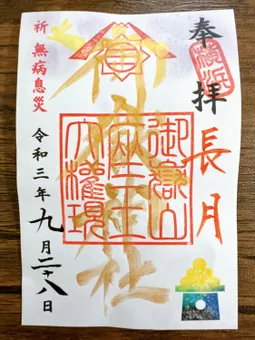 奉拝
横浜
長月
社
御嶽山
大權現
祈 無病息災
令和三年九月二十八日